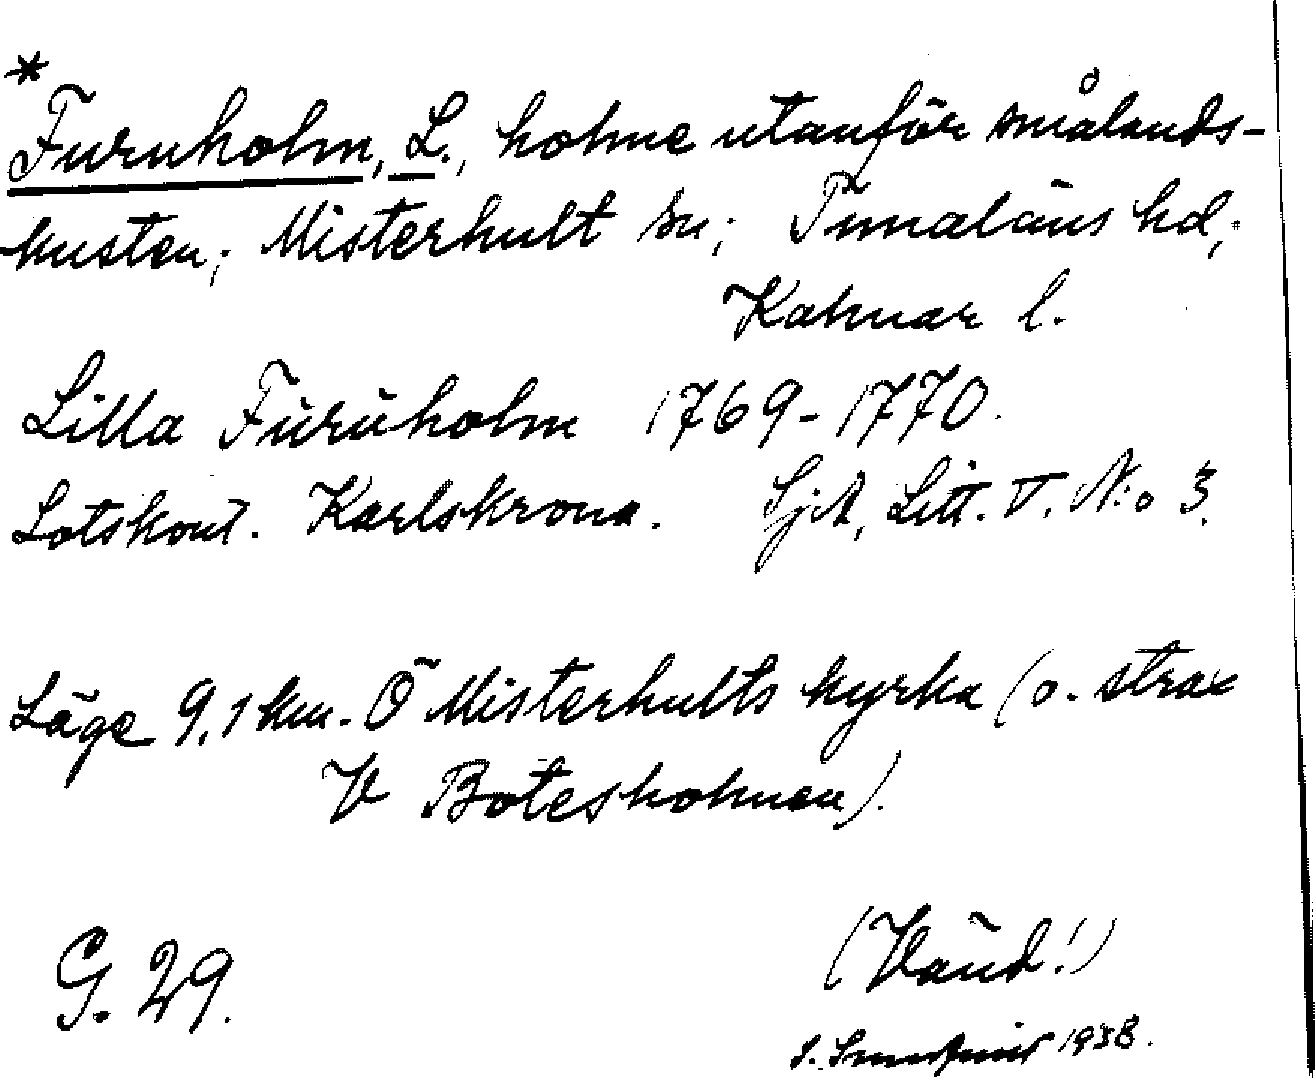 *
Furuholm, L., holme utanför smålands-
kusten; Misterhult sn; Tunaläns hd;
Kalmar l.
Lilla Furuholm 1769-1770.
Lotskont. Karlskrona. SjA, Litt. V. N:o 3.
Läge 9,1 km. Ö Misterhults kyrka (o. strax
V Botesholmen).
(Vänd!)
G. 29.
1938.